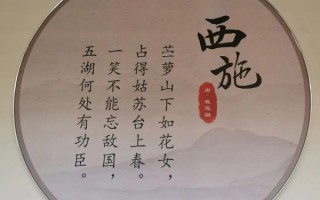 西施
苎萝山下如花女，
占得姑苏台上春。
一笑不能忘敌国，
五湖何处有功臣。